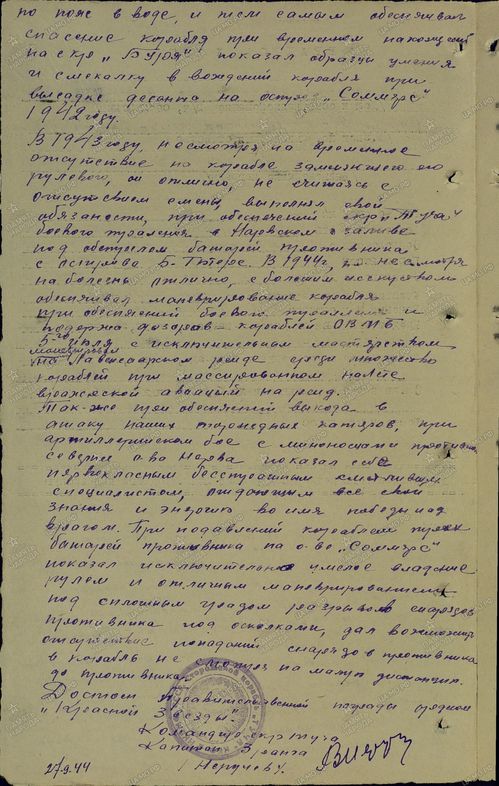 по пояс в воде, и тем самым обеспечивал
спасение корабля при временном нахожден.
на скр „Буря" показал образцы умения
и смекалку в вождении корабля при
высадке десанта на остров „Соммерс"
1942 году.
В 1943 году, несмотря на временное
отсутствие на корабле заменяющего его
рулевого, он отлично, не считаясь с
отсутствием смены, выполнял свой
обязаности, при обеспечении скр „Туча"
боевого траления в Нарвском заливе
под обстрелом батарей противника
с острова Б-Тютерс. В 1944 г, не смотря
на болезнь отлично, с большим искуством
обеспечивал маневрирование корабля
при обеспечении боевого траления и
поддержа дозоров кораблей ОВМБ
5-20 июля с исключительным мастерством
маневрировал
на Лавенсаарском рейде среди множество
кораблей при массированном налете
вражеской авиации на рейд.
Так-же при обеспечений выхода в
атаку наших торпедных катеров, при
артиллерийском бое с миноносцами противни
севернее о-ва Нерва показал себя
первокласным бесстрашным
специалистом, отдающим все свои
знания и энергию во имя победы над
врагом. При подавлений кораблем
батарей противника на о-ве „Соммерс"
показал исключительное умелое владение
рулем и отличным маневрированием
под сплошным градом разрывов снарядов
противника под осколками, дал возможность
отсутствие попаданий снарядов противника
в корабль не смотря на малую дистанцию
до противника.
Достоин Правительственной награды орденом
„Красной Звезды".
Командир скр Туча
Капитан 3 ранга
27.9.44